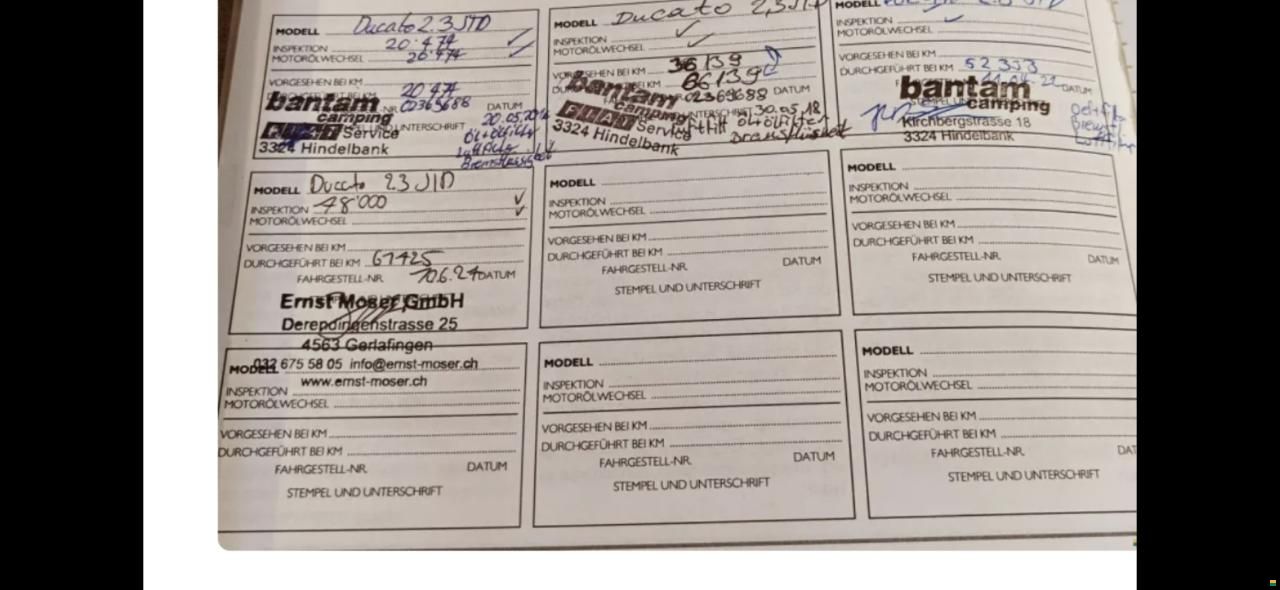 MODELL Ducato 2.3 JTD
INSPEKTION 20.474 ✓
MOTORÖLWECHSEL 20.474 ✓
VORGESEHEN BEI KM
DURCHGEFÜHRT BEI KM 20474
NR. 02369688 DATUM
bantam
camping
20.05.2016
FIAT Service UND UNTERSCHRIFT
3324 Hindelbank
MODELL Ducato 2,3 JTD
INSPEKTION ✓
MOTORÖLWECHSEL ✓
VORGESEHEN BEI KM 36139
BEI KM 36139
02369688 DATUM
bantam
camping
30.05.18
FIAT Service
3324 Hindelbank
MODELL
INSPEKTION ✓
MOTORÖLWECHSEL
VORGESEHEN BEI KM
DURCHGEFÜHRT BEI KM 52353
DATUM
bantam
camping
Kirchbergstrasse 18
3324 Hindelbank
MODELL Ducato 23 JTD
INSPEKTION 48'000 ✓
MOTORÖLWECHSEL ✓
VORGESEHEN BEI KM
DURCHGEFÜHRT BEI KM 67425
FAHRGESTELL-NR. DATUM
Ernst Moser GmbH
Derendingenstrasse 25
4563 Gerlafingen
032 675 58 05 info@ernst-moser.ch
www.ernst-moser.ch
MODELL
INSPEKTION
MOTORÖLWECHSEL
VORGESEHEN BEI KM
DURCHGEFÜHRT BEI KM
FAHRGESTELL-NR. DATUM
STEMPEL UND UNTERSCHRIFT
MODELL
INSPEKTION
MOTORÖLWECHSEL
VORGESEHEN BEI KM
DURCHGEFÜHRT BEI KM
FAHRGESTELL-NR. DATUM
STEMPEL UND UNTERSCHRIFT
MODELL
INSPEKTION
MOTORÖLWECHSEL
VORGESEHEN BEI KM
DURCHGEFÜHRT BEI KM
FAHRGESTELL-NR. DATUM
STEMPEL UND UNTERSCHRIFT
MODELL
INSPEKTION
MOTORÖLWECHSEL
VORGESEHEN BEI KM
DURCHGEFÜHRT BEI KM
FAHRGESTELL-NR. DATUM
STEMPEL UND UNTERSCHRIFT
MODELL
INSPEKTION
MOTORÖLWECHSEL
VORGESEHEN BEI KM
DURCHGEFÜHRT BEI KM
FAHRGESTELL-NR. DAT
STEMPEL UND UNTERSCHRIFT